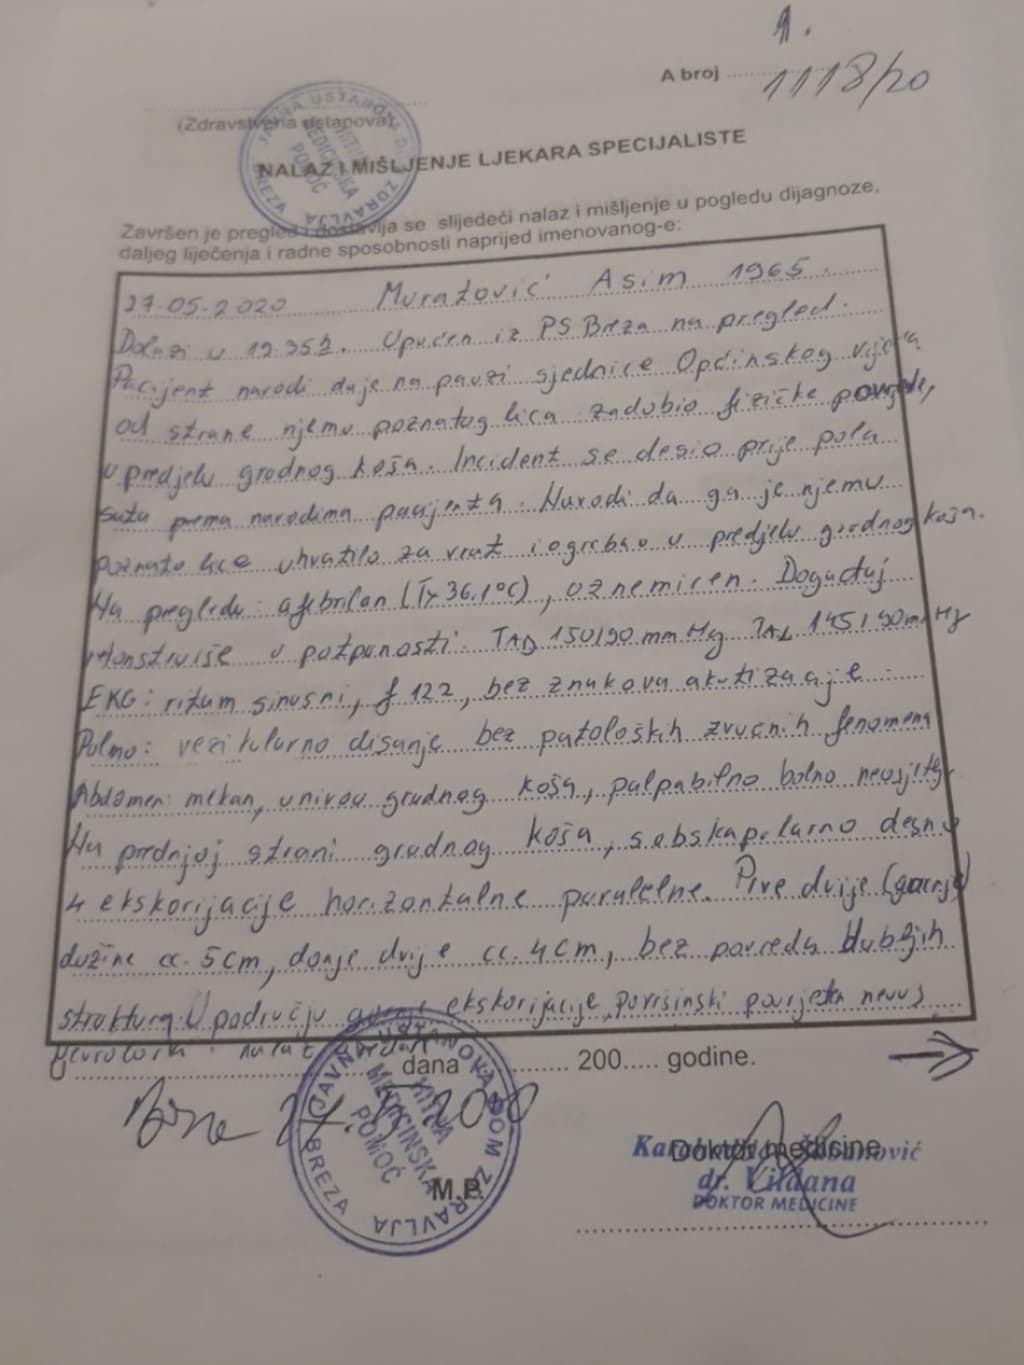 1.
A broj 1118/20
(Zdravstvena ustanova)
JAVNA USTANOVA DOM ZDRAVLJA BREZA
HITNA MEDICINSKA POMOĆ
NALAZ I MIŠLJENJE LJEKARA SPECIJALISTE
Završen je pregled i dostavlja se slijedeći nalaz i mišljenje u pogledu dijagnoze,
daljeg liječenja i radne sposobnosti naprijed imenovanog-e:
27.05.2020 Muratović Asim 1965
Dolazi u 19.35h. Upućen iz PS Breza na pregled.
Pacijent navodi da je na pauzi sjednice Općinskog vijeća
od strane njemu poznatog lica zadobio fizičke povrede,
u predjelu grudnog koša. Incident se desio prije pola
sata prema navodima pacijenta. Navodi da ga je njemu
poznato lice uhvatilo za vrat i ogrebao u predjelu grudnog koša.
Na pregledu: afebrilan (Tx 36,1°C), uznemiren. Događaj
u potpunosti. TAD 150/90 mmHg TAL 145/90mmHg
EKG: ritam sinusni, f 122, bez znakova akutizacije
Pulmo: vezikularno disanje bez patoloških zvučnih fenomena
Abdomen: mekan, u nivou grudnog koša, palpabilno bolno neosjetljiv
Na prednjoj strani grudnog koša, desno
4 ekskorijacije horizontalne paralelne. Prve dvije (gornje)
dužine cc. 5cm, donje dvije cc. 4cm, bez povreda dubljih
struktura. U području gornje ekskorijacije, površinski nevus
dana 200..... godine.
2020
JAVNA USTANOVA DOM ZDRAVLJA BREZA
HITNA MEDICINSKA POMOĆ
M.P.
Doktor medicine
dr. Vildana
DOKTOR MEDICINE